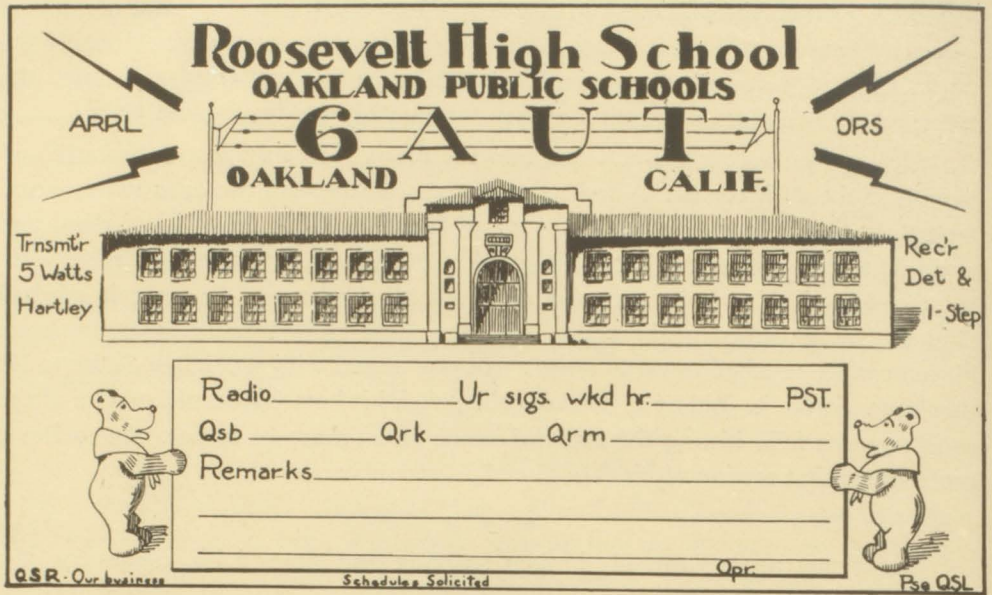 Roosevelt High School
OAKLAND PUBLIC SCHOOLS
ARRL
6 A U T
ORS
OAKLAND CALIF.
Trnsmt'r
5 Watts
Hartley
Rec'r
Det &
1-Step
Radio Ur sigs. wkd hr. PST.
Qsb Qrk Qrm
Remarks
Opr.
QSR - Our business
Schedules Solicited
Pse QSL